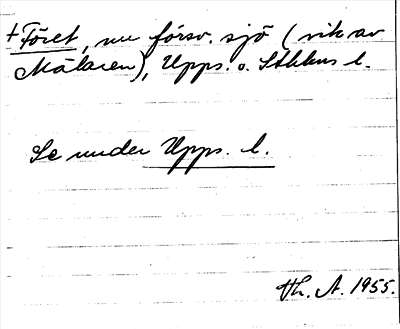 + Föret, nu försv. sjö (vik av
Mälaren), Upps. o. Sthlms l.
Se under Upps. l.
Th. A. 1955.